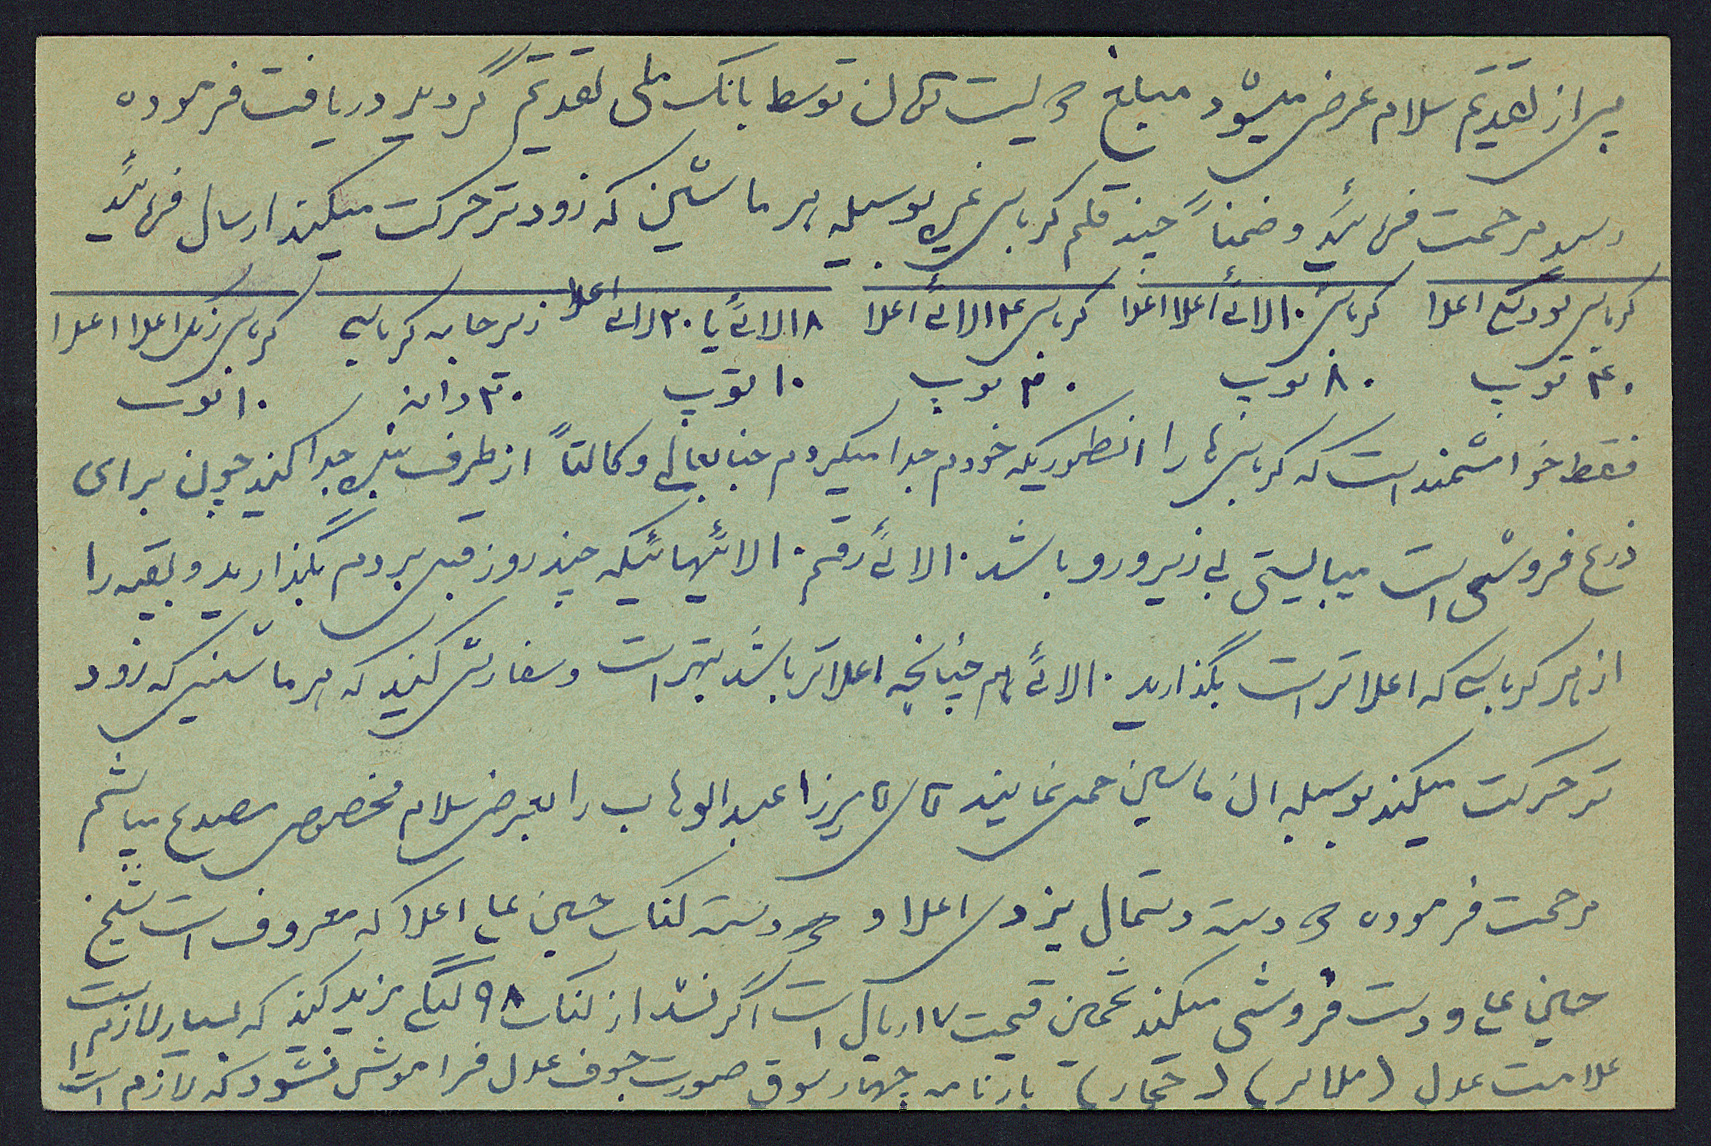 پس از تقدیم سلام عرض میشود مبلغ دویست تومان توسط بانک ملی تقدیم گردید دریافت فرموده
رسید مرحمت فرمائید و ضمناً چند قلم کرباس بوسیله هر ماشین که زودتر حرکت میکند ارسال فرمائید
کرباس اعلا کرباس ۱۰ لائی اعلا اعلا کرباس ۱۴ لائی اعلا ۱۸ لائی یا ۲۰ لائی اعلا زیر جامه کرباسی کرباس اعلا اعلا
۴۰ توپ ۸۰ توپ ۴۰ توپ ۱۰ توپ ۳۰ دانه ۱۰ توپ
فقط خواهشمند است که کرباسها را انطوریکه خودم جدا میکردم جنابعالی وکالتاً از طرف بنده جدا کنید چون برای
ذرع فروشی است میبایستی بی زیر و رو باشد ۱۰ لائی رقم ۱۰ لائیهائیکه چند روز قبل بردم بگذارید و بقیه را
از هر کرباسی که اعلاتر است بگذارید ۱۰ لائی هم چنانچه اعلاتر باشد بهتر است و سفارش کنید که هر ماشینی که زود
تر حرکت میکند بوسیله ان ماشین حمل نمایند اقای اقا میرزا عبدالوهاب را بعرض سلام مخصوص مصدع میباشم
مرحمت فرموده دسته دستمال یزدی اعلا و دسته لنگ حسین علی اعلا که معروف است شیخ
حسین علی و دست فروشی میکند تخمین قیمت ۱۷ ریال است اگر نشد از لنگ ۹۸ خرید کنید که بسیار لازم است
علامت عدل (ملایر) (حجار) بارنامه چهار سوق صورت جوف عدل فراموش نشود که لازم است